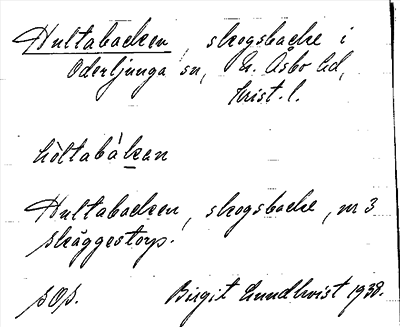 Hultabacken, skogsbacke i
Oderljunga sn, N. Åsbo hd,
Krist. l.
hòltabákan
Hultabacken, skogsbacke, nr 3
Skäggestorp.
SOp. Birgit Lundkvist 1938.